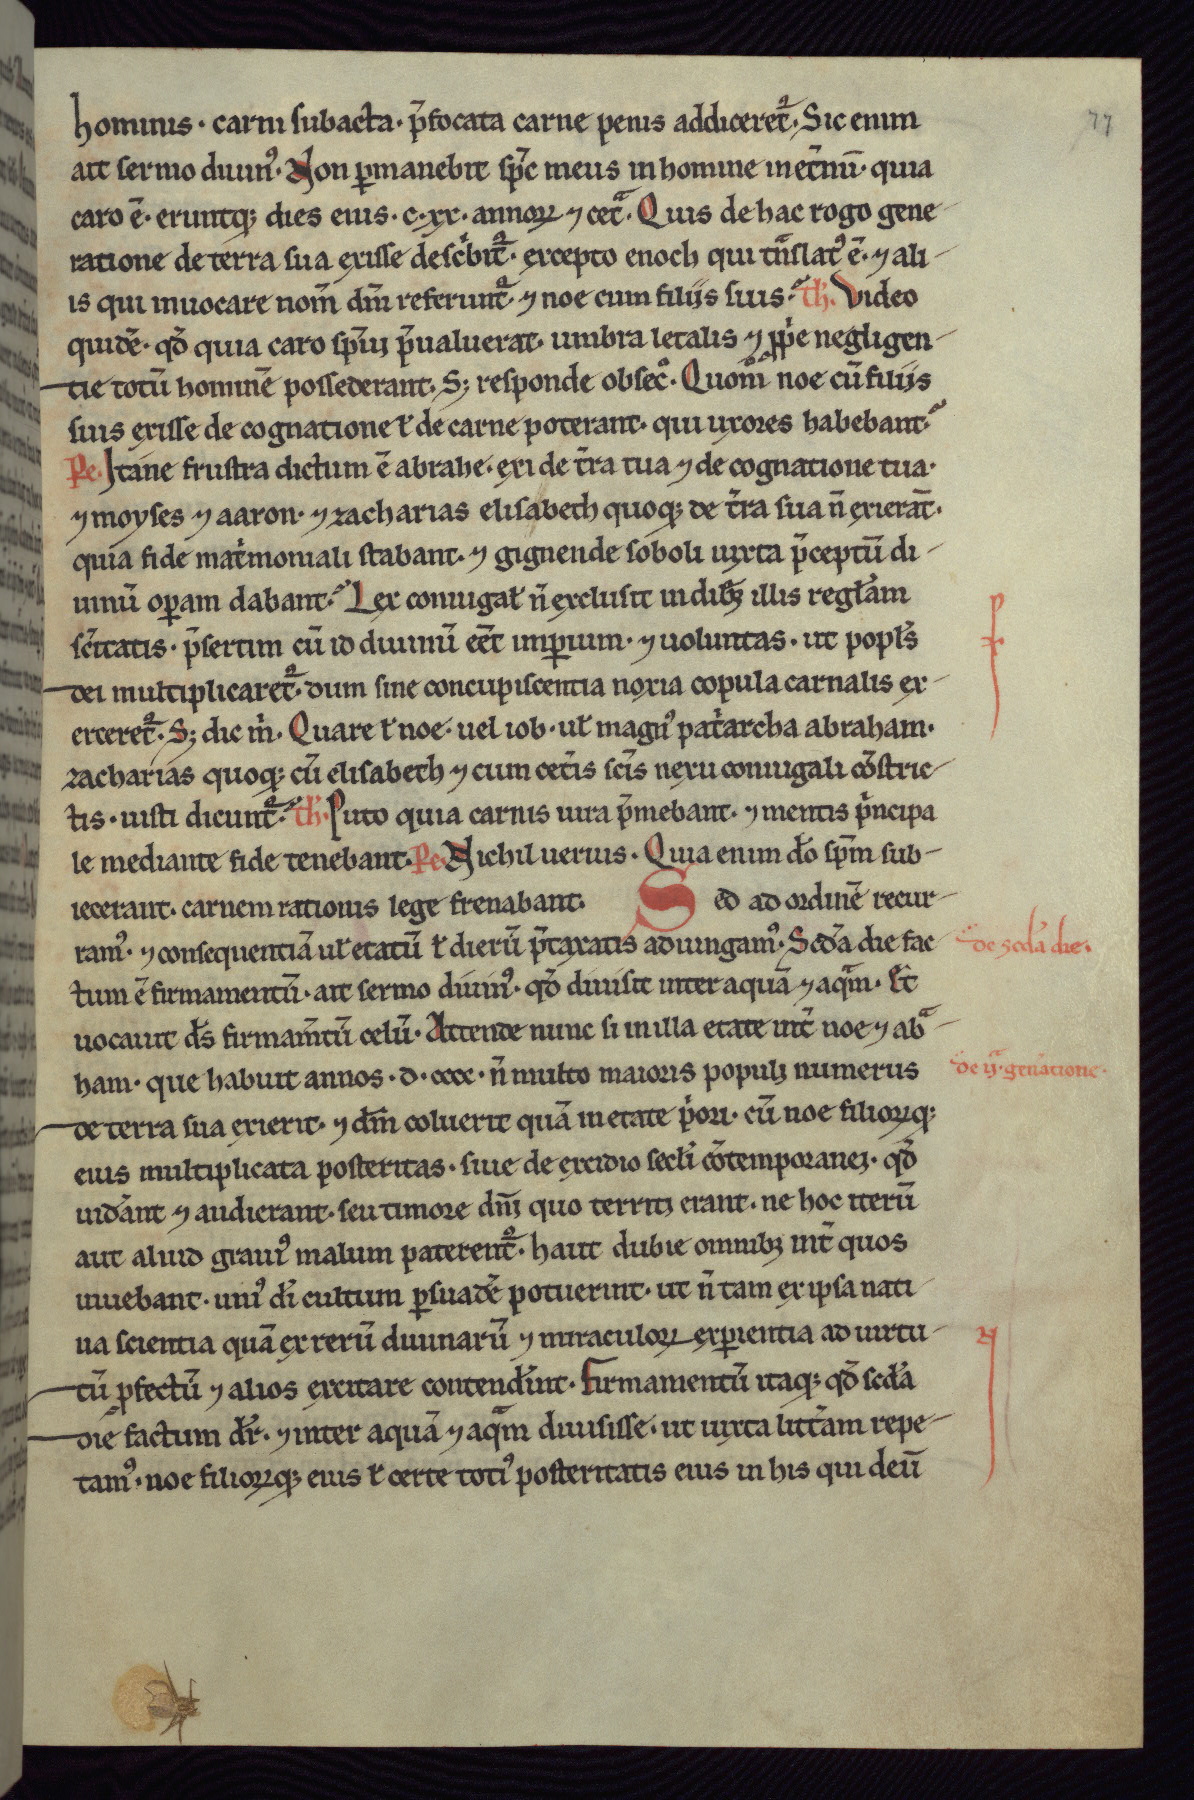 77
hominis · carni subacta · p̄focata carne penis addiceret᷑ · Sic enim
ait sermo diuinꝰ · Non ꝑmanebit sp̄c meus in homine inet̄nū · quia
caro ē · eruntqꝫ dies eius · c · xx · annoꝝ ⁊ cet̄a · Quis de hac rogo gene
ratione de terra sua exisse desc̍bit᷑ · excepto enoch qui tn̄slatꝰ ē · ⁊ ali
is qui inuocare nom̄ dn̄i referunt᷑ · ⁊ noe cum filiis suis · Th̄ · Video
quidē · qd̄ quia caro sp̄ui p̄ualuerat · umbra letalis ⁊ ꝓp̍e negligen
tie totū hominē possederant · Sꝫ responde obsec̊ · Quom̊ noe cū filiis
suis exisse de cognatione ł de carne poterant · qui uxores habebant ·
Pe · Itane frustra dictum ē abrahe · exi de t̄ra tua ⁊ de cognatione tua ·
⁊ moyses ⁊ aaron · ⁊ zacharias elisabeth quoqꝫ de t̄ra sua n̄ exierāt ·
quia fide mat̍moniali stabant · ⁊ gignende soboli iuxta p̄ceptū di
uinū oꝑam dabant · Lex coniugał n̄ exclusit in dibꝫ illis regłam
sc̄itatis · p̄sertim cū id diuinū eēt imꝑium · ⁊ uoluntas · ut popłs
dei multiplicaret᷑ · dum sine concupiscentia noxia copula carnalis ex
erceret᷑ · Sꝫ dic m̍ · Quare ł noe · uel iob · uł magnꝰ pat̍archa abraham ·
zacharias quoqꝫ cū elisabeth ⁊ cum cet̄is sc̄is nexu coniugali cōstric
tis · iusti dicunt᷑ · Th̄ · Puto quia carnis iura p̄mebant · ⁊ mentis p̍ncipa
le mediante fide tenebant · Pe · Nichil uerius · Quia enim dō sp̄m sub
iecerant · carnem rationis lege frenabant · Sed ad ordinē recur
ramꝰ · ⁊ consequentiā uł etatū ł dierū p̄taxatis adiungamꝰ · Scd̄a die fac
de scd̄a die ·
tum ē firmamentū · ait sermo diuinꝰ · qd̄ diuisit inter aquā ⁊ aq̄m · Et
uocauit ds̄ firmam̄tū celū · Attende nunc si in illa etate int̄ noe ⁊ abᵃ
ham · que habuit annos · d · cccc · n̄ multo maioris populi numerus
de ij · gen̄atione ·
de terra sua exierit · ⁊ dm̄ coluerit quā in etate p̍ori · cū noe filioꝝqꝫ
eius multiplicata posteritas · siue de excidio secłi cōtemporanei · qd̄
uid̄ant ⁊ audierant · seu timore dn̄i quo territi erant · ne hoc iterū
aut aliud grauiꝰ malum paterent᷑ · haut dubie omnibꝫ int̄ quos
uiuebant · uniꝰ dī cultum ꝑsuad̄e potuerint · ut n̄ tam ex ipsa nati
ua scientia quā ex rerū diuinarū ⁊ miraculoꝝ exꝑientia ad uirtu
tū ꝓfectū ⁊ alios excitare contend̄int · Firmamentū itaqꝫ qd̄ scd̄a
die factum dr̄ · ⁊ inter aquā ⁊ aq̄m diuisisse · ut iuxta litt̄am repe
tamꝰ · noe filioꝝqꝫ eius ł certe totiꝰ posteritatis eius in his qui deū